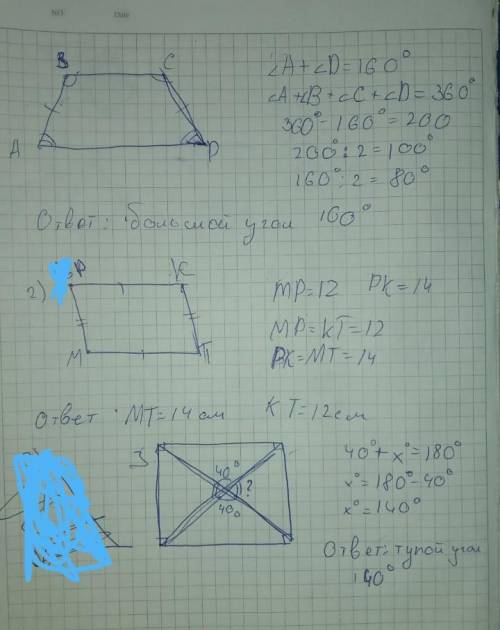 B C
A D
∠A+∠D=160°
∠A+∠B+∠C+∠D=360°
360°-160°=200
200°:2=100°
160°:2=80°
Ответ: большой угол 100°
2) P K
M T
MP=12 PK=14
MP=KT=12
PK=MT=14
Ответ MT=14см KT=12см
3
40°
?
40°
40°+x°=180°
x°=180°-40°
x°=140°
Ответ: тупой угол
140°